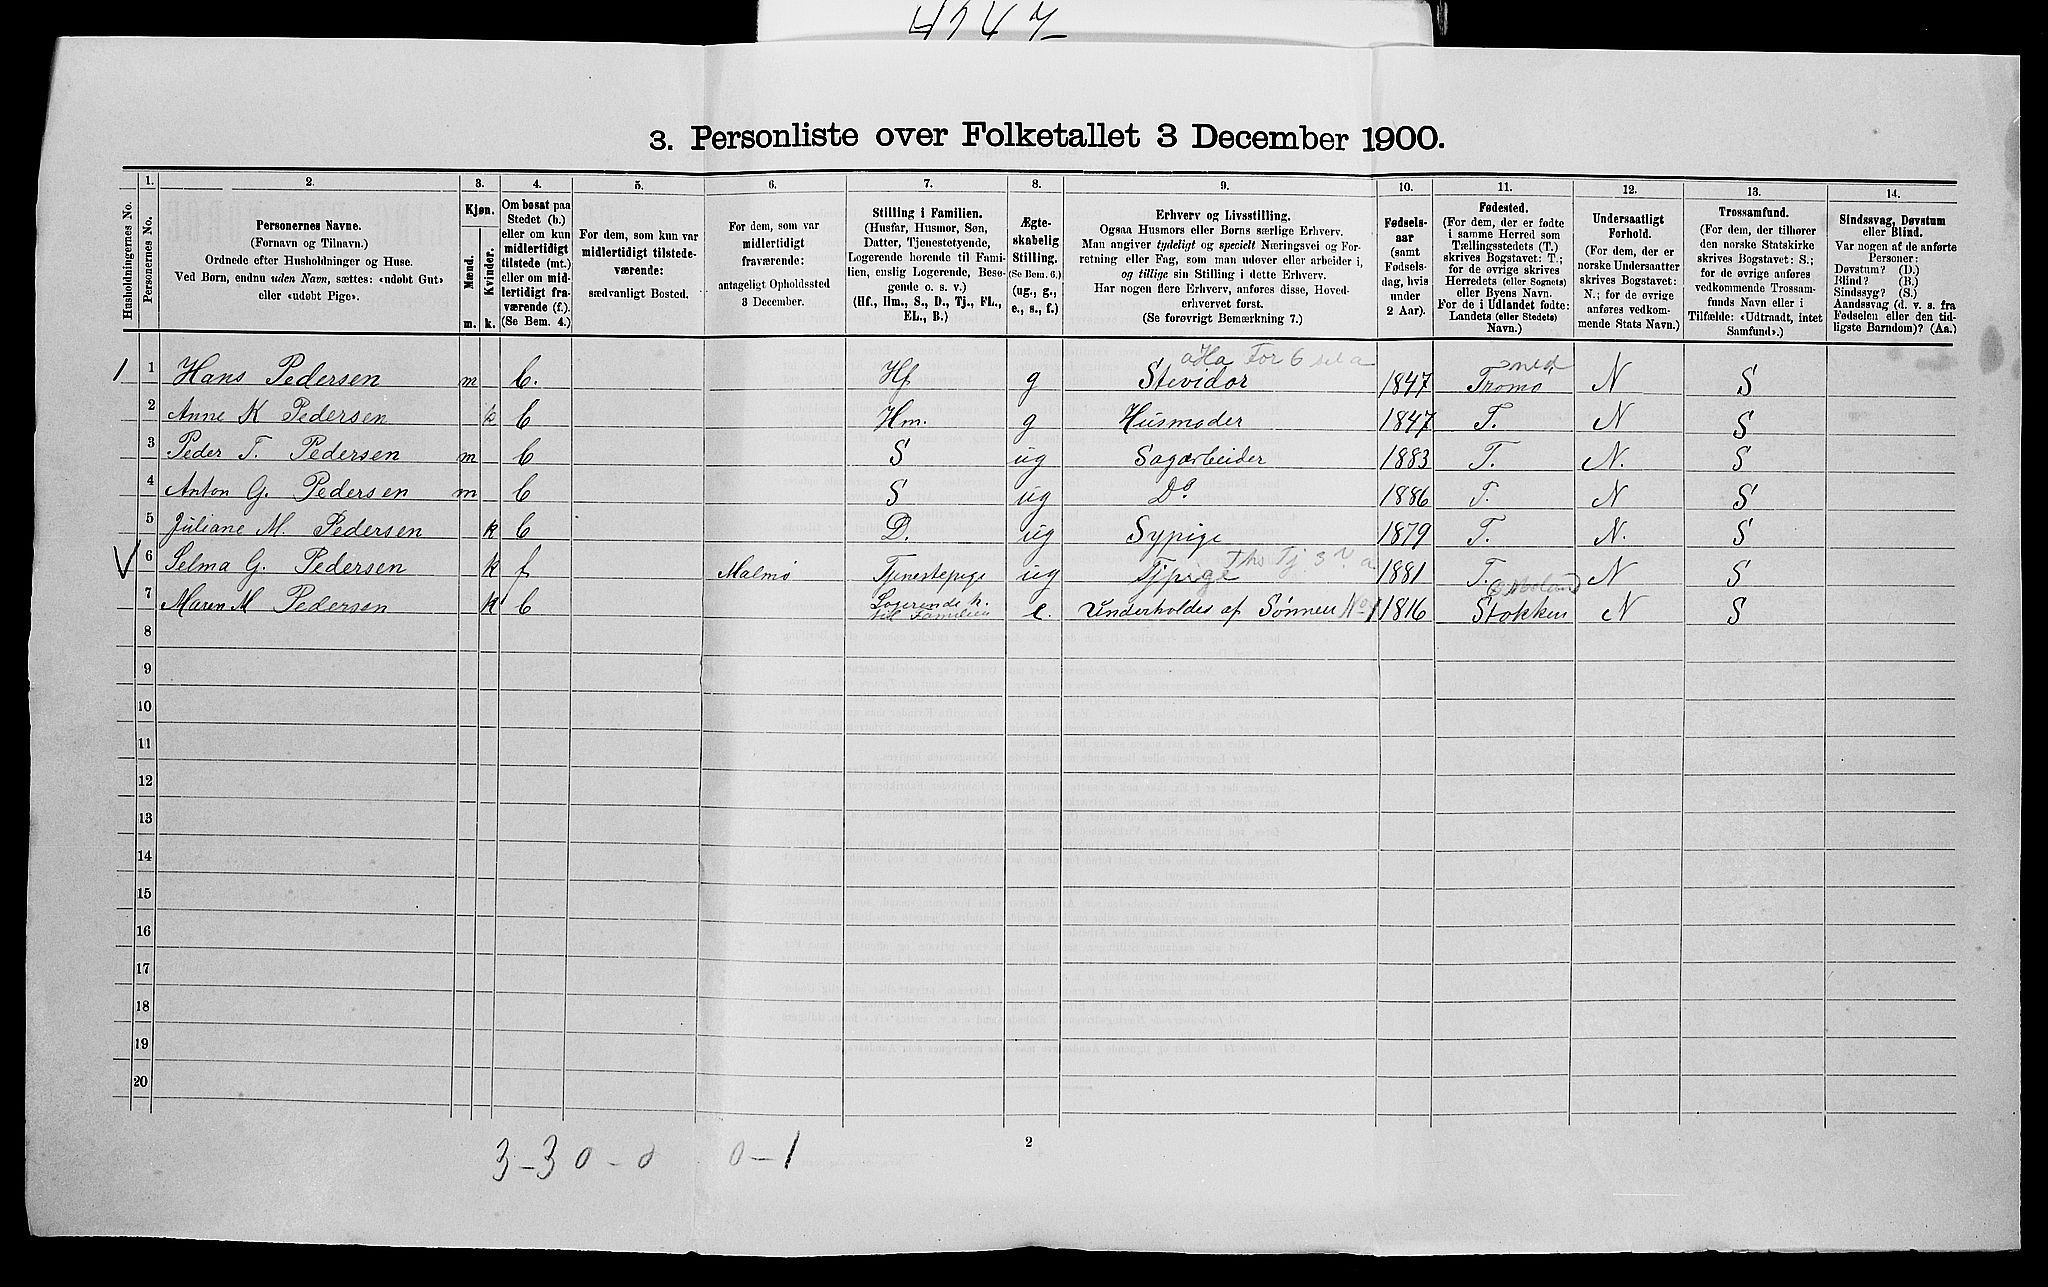 4747
3. Personliste over Folketallet 3 December 1900.
Husholdningernes No.
1. Personernes No.
2.
Personernes Navne.
(Fornavn og Tilnavn.)
Ordnede efter Husholdninger og Huse.
Ved Børn, endnu uden Navn, sættes: «udøbt Gut»
eller «udøbt Pige».
3.
Kjøn.
Mænd.
Kvinder.
m. k.
4.
Om bosat paa
Stedet (b.)
eller om kun
midlertidigt
tilstede (mt.)
eller om mid-
lertidigt fra-
værende (f.).
(Se Bem. 4.)
5.
For dem, som kun var
midlertidigt tilstede-
værende:
sædvanligt Bosted.
6.
For dem, som var
midlertidigt
fraværende:
antageligt Opholdssted
3 December.
7.
Stilling i Familien.
(Husfar, Husmor, Søn,
Datter, Tjenestetyende,
Logerende hørende til Fami-
lien, enslig Logerende, Besø-
gende o. s. v.)
(Hf., Hm., S., D., Tj., FL.,
EL., B.)
8.
Ægte-
skabelig
Stilling.
(Se Bem. 6.)
(ug., g.,
e., s., f.)
9.
Erhverv og Livsstilling.
Ogsaa Husmors eller Børns særlige Erhverv.
Man angiver tydeligt og specielt Næringsvei og For-
retning eller Fag, som man udover eller arbeider i,
og tillige sin Stilling i dette Erhverv.
Har nogen flere Erhverv, anføres disse, Hoved-
erhvervet først.
(Se forøvrigt Bemærkning 7.)
10.
Fødsels-
aar
(samt
Fødsels-
dag, hvis
under
2 Aar).
11.
Fødested.
(For dem, der er fødte
i samme Herred som
Tællingsstedets (T.)
skrives Bogstavet: T.;
for de øvrige skrives
Herredets (eller Sognets)
eller Byens Navn.
For de i Udlandet fødte:
Landets (eller Stedets)
Navn.)
12.
Undersaatligt
Forhold.
(For dem, der er
norske Undersaatter
skrives Bogstavet:
N.; for de øvrige
anføres vedkom-
mende Stats Navn.)
13.
Trossamfund.
(For dem, der tilhører
den norske Statskirke
skrives Bogstavet: S.;
for de øvrige anføres
vedkommende Trossam-
funds Navn eller i
Tilfælde: «Udtraadt, intet
Samfund».)
14.
Sindssvag, Døvstum
eller Blind.
Var nogen af de anførte
Personer:
Døvstum? (D.)
Blind? (B.)
Sindssyg? (S.)
Aandssvag (d. v. s. fra
Fødselen eller den tid-
ligste Barndom)? (Aa.)
1 1 Hans Pedersen m b. Hf g Stevidor 1847 Tromø N S
2 Anne K Pedersen k b Hm. g Husmoder 1847 T. N S
3 Peder T. Pedersen m b S ug Sagarbeider 1883 T. N. S
4 Anton G. Pedersen m b S ug Do 1886 T. N S
5 Juliane M. Pedersen k b D. ug Sypige 1879 T. N. S
6 Selma G. Pedersen k f Malmø Tjenestepige ug Tjpige 1881 T. N S
7 Maren M Pedersen k b Logerende h. til Familien e. Underholdes af Sønnen No 1 1816 Stokken N S
8
9
10
11
12
13
14
15
16
17
18
19
20
3-3 0-0 0-1
2